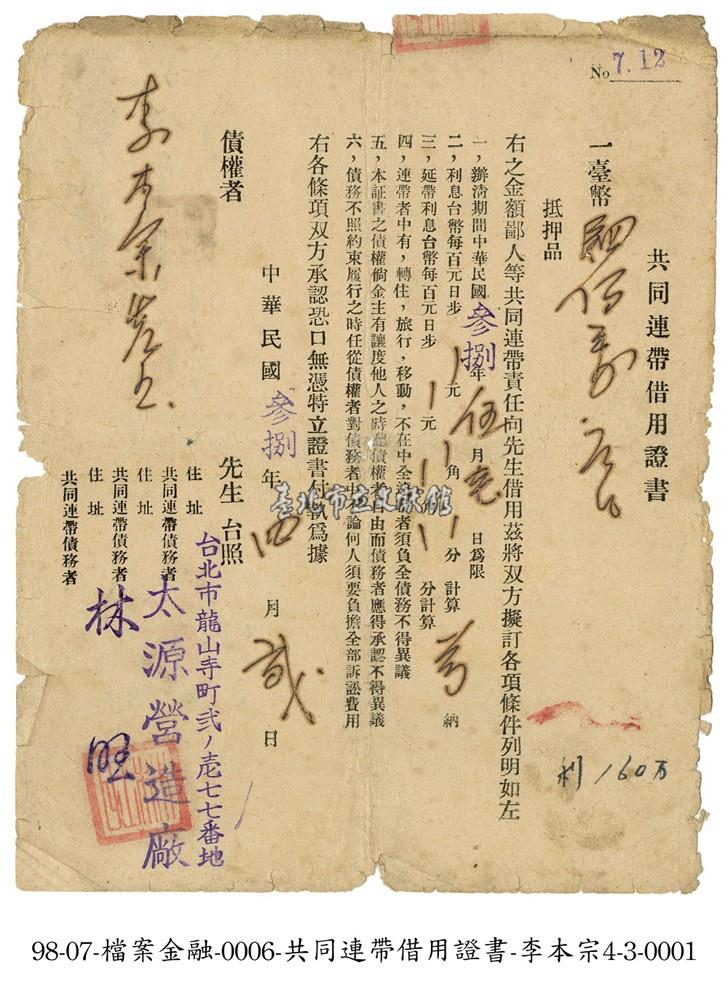 No 7.12
共同連帶借用證書
一臺幣 四佰萬元
抵押品
右之金額鄙人等共同連帶責任向先生借用茲將双方擬訂各項條件列明如左
一，辦淸期間中華民國參捌年伍月壱日爲限
二，利息台幣每百元日步 元 角 分計算 納
三，延帶利息台幣每百元日步 元 分計算
四，連帶者中有，轉住，旅行，移動，不在中全 者須負全債務不得異議
五，本証書之債權倘金主有讓度他人之時 債權者自由而債務者應得承認不得異議
六，債務不照約束履行之時任從債權者對債務者 論何人須要負擔全部訴訟費用
右各條項双方承認恐口無憑特立證書付執爲據
中華民國參捌年四月貳日
債權者 李本宗 先生 台照
住址 台北市龍山寺町弍ノ壱七七番地
共同連帶債務者 太源營造廠
住址
共同連帶債務者 林 旺
住址
共同連帶債務者
利 160万
臺北市立文獻館
98-07-檔案金融-0006-共同連帶借用證書-李本宗4-3-0001